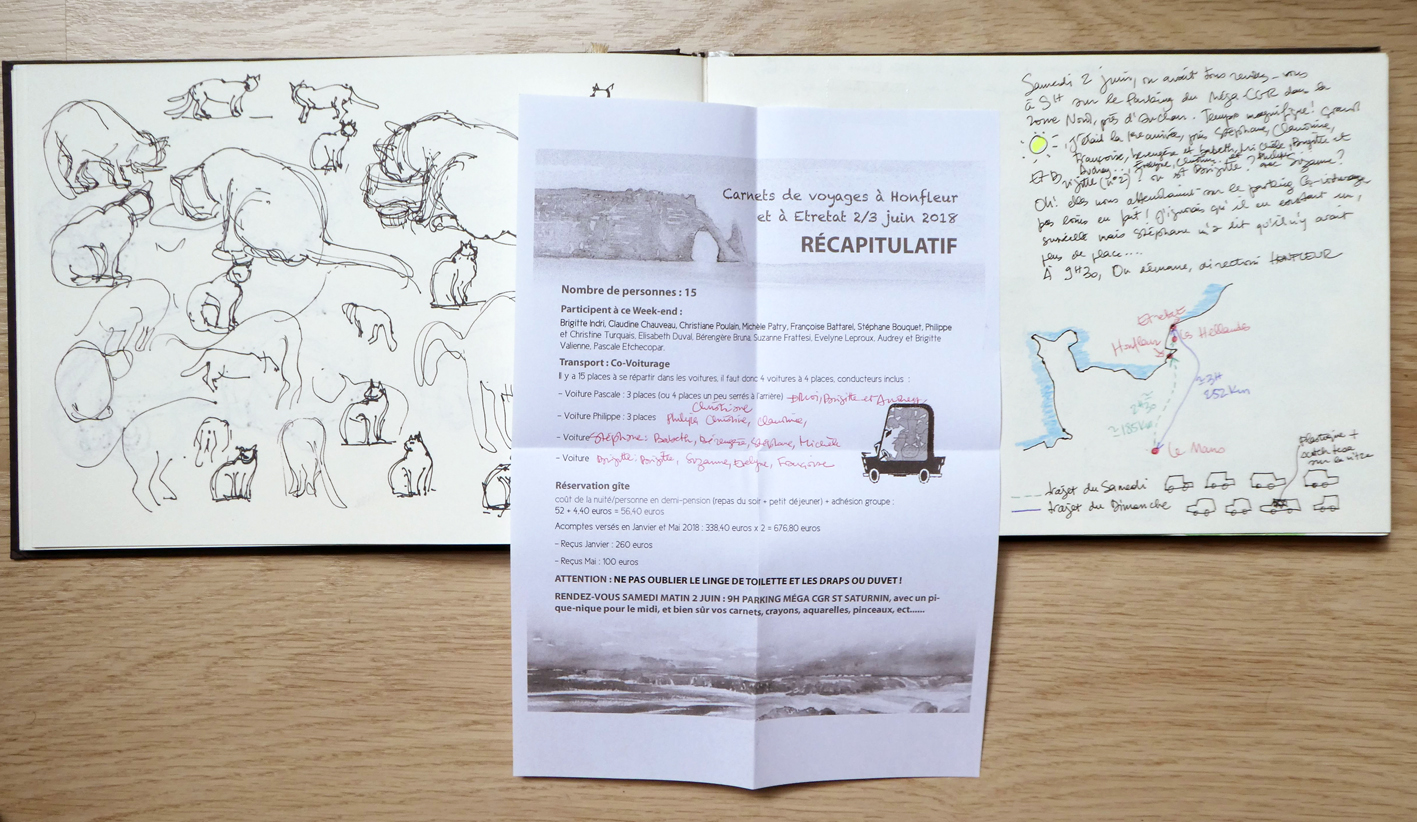 Carnets de voyages à Honfleur
et à Etretat 2/3 juin 2018
RÉCAPITULATIF
Nombre de personnes : 15
Participent à ce Week-end :
Brigitte Indri, Claudine Chauveau, Christiane Poulain, Michèle Patry, Françoise Battarel, Stéphane Bouquet, Philippe
et Christine Turquais, Elisabeth Duval, Bérengère Bruna, Suzanne Frattesi, Evelyne Leproux, Audrey et Brigitte
Valienne, Pascale Etchecopar.
Transport : Co-Voiturage
Il y a 15 places à se répartir dans les voitures, il faut donc 4 voitures à 4 places, conducteurs inclus :
– Voiture Pascale : 3 places (ou 4 places un peu serrés à l'arrière) Brigitte et Audrey
Christiane
– Voiture Philippe : 3 places Philippe Christine, Claudine,
– Voiture Stéphane : Babeth, Bérengère, Stéphane, Michèle
– Voiture Brigitte : Brigitte, Suzanne, Evelyne, Françoise
Réservation gîte
coût de la nuité/personne en demi-pension (repas du soir + petit déjeuner) + adhésion groupe :
52 + 4.40 euros = 56,40 euros
Acomptes versés en Janvier et Mai 2018 : 338,40 euros x 2 = 676,80 euros
– Reçus Janvier : 260 euros
– Reçus Mai : 100 euros
ATTENTION : NE PAS OUBLIER LE LINGE DE TOILETTE ET LES DRAPS OU DUVET !
RENDEZ-VOUS SAMEDI MATIN 2 JUIN : 9H PARKING MÉGA CGR ST SATURNIN, avec un pi-
que-nique pour le midi, et bien sûr vos carnets, crayons, aquarelles, pinceaux, ect......
Samedi 2 juin, on avait tous rendez-vous
à 9H sur le Parking du Méga CGR dans la
zone Nord, près d'Auchan. Temps magnifique! Grand
j'étais la 1ère arrivée, puis Stéphane, Claudine,
Françoise, Bérengère et Babeth, Michèle, Brigitte et
Audrey, Evelyne, Christine et Philippe
Et Brigitte (n°2)? où est Brigitte? avec Suzanne?
Oh! elles nous attendaient sur le parking Co-voiturage
pas loin en fait! J'ignorais qu'il en existait un,
surveillé mais Stéphane m'a dit qu'il n'y avait
plus de place....
À 9H30, On démarre, direction HONFLEUR
Etretat
Le Havre
Honfleur
252 km
2H30
≃ 185 km
Le Mans
plastique +
scotch
sur la vitre
trajet du Samedi
trajet du Dimanche